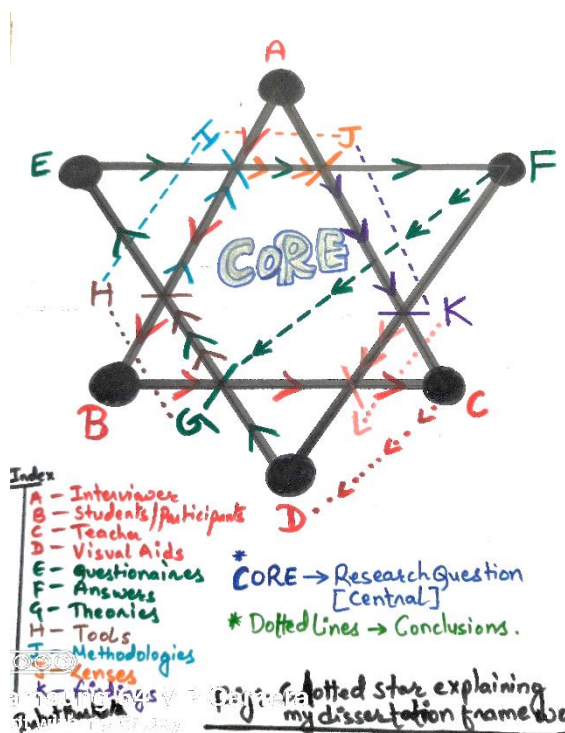 A
I
J
E
F
CORE
H
K
B
G
L
C
D
Index
A - Interviewer
B - Students/Participants
C - Teacher
D - Visual Aids
E - Questionaires
F - Answers
G - Theories
H - Tools
I - Methodologies
J - Lenses
K - Findings
* CORE → Research Question
[Central]
* Dotted Lines → Conclusions.
6 dotted star explaining
my dissertation framewo